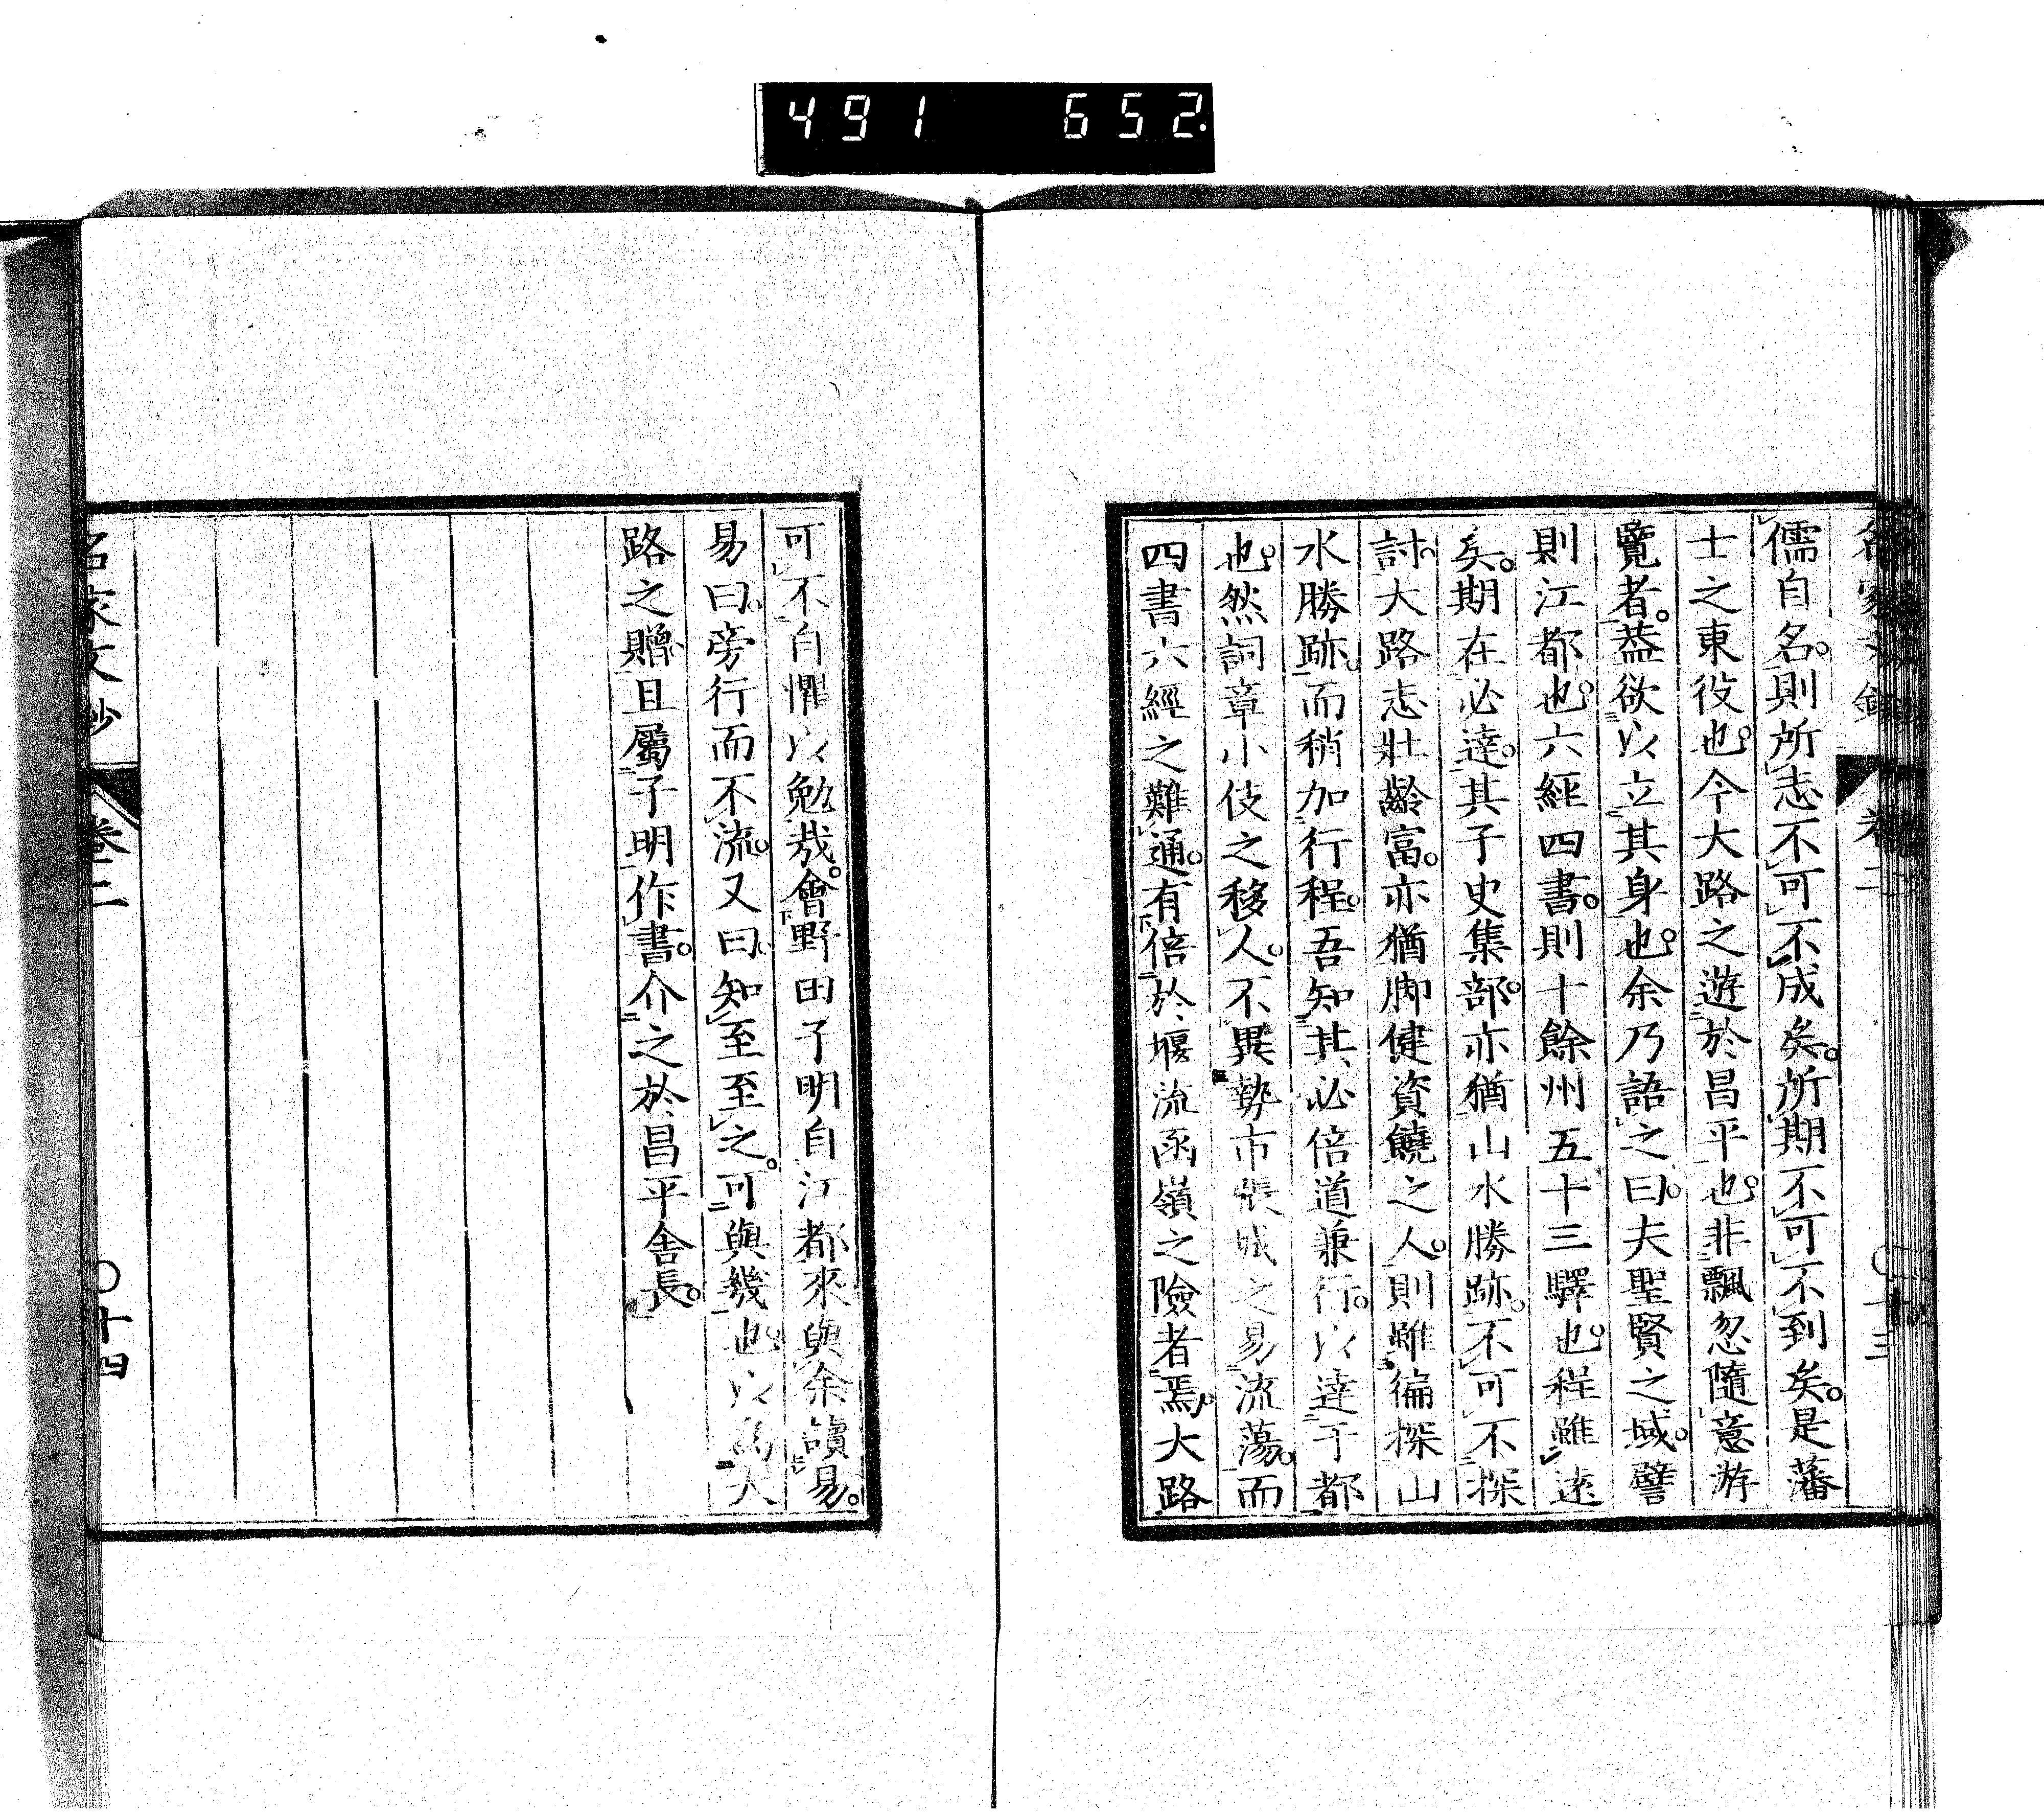 491 652.
儒自名。則所志不可不成矣。所期不可不到矣。是藩
士之東役也。今大路之遊於昌平也。非飄忽隨意游
覽者。蓋欲以立其身也。余乃語之曰。夫聖賢之域。譬
則江都也。六經四書。則十餘州五十三驛也。程雖遠
矣。期在必達。其子史集部。亦猶山水勝跡。不可不探
討。大路志壯齡富。亦猶脚健資饒之人。則雖徧探山
水勝跡。而稍加行程。吾知其必倍道兼行。以達于都
也。然詞章小伎之移人。不異勢市之易流蕩。而
四書六經之難通。有倍於堰流函嶺之險者焉。大路
卷二
十三
可不自懼以勉哉。會野田子明自江都來與余讀易。
易曰。旁行而不流。又曰。知至至之。可與幾也。以為大
路之贈。且屬子明作書。介之於昌平舍長。
名家文抄
卷二
〇十四